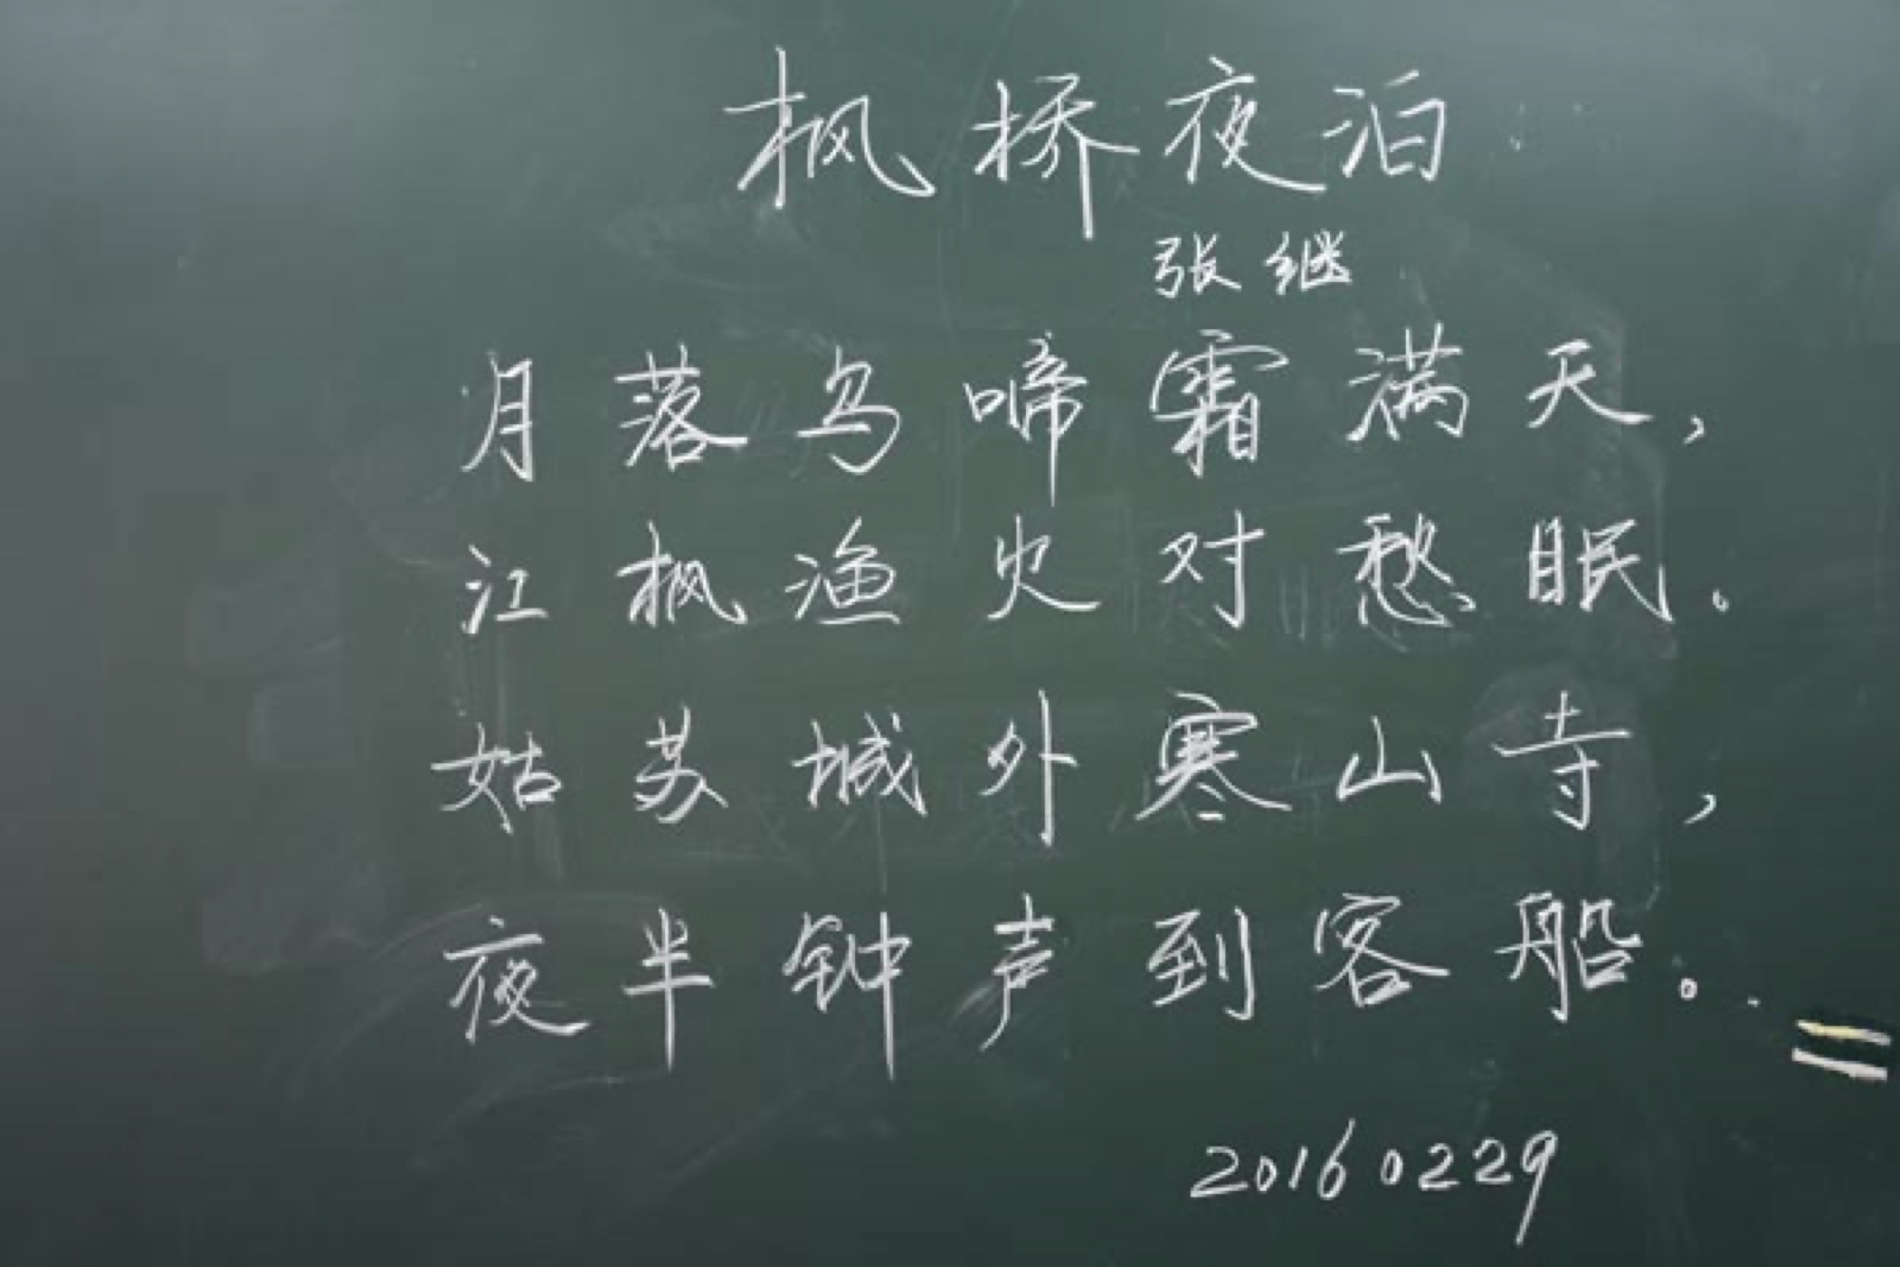 枫桥夜泊
张继
月落乌啼霜满天，
江枫渔火对愁眠．
姑苏城外寒山寺，
夜半钟声到客船。
20160229